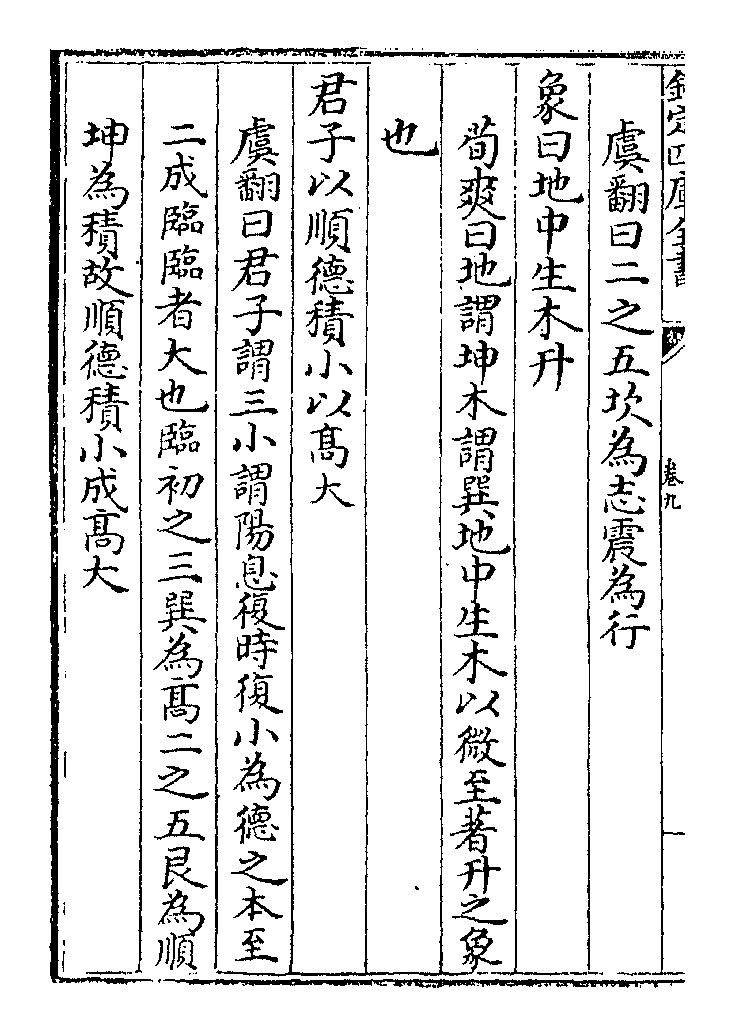 欽定四庫全書
卷九
虞翻曰二之五坎為志震為行
象曰地中生木升
荀爽曰地謂坤木謂巽地中生木以微至著升之象
也
君子以順德積小以高大
虞翻曰君子謂三小謂陽息復時復小為德之本至
二成臨臨者大也臨初之三巽為高二之五艮為順
坤為積故順德積小成高大